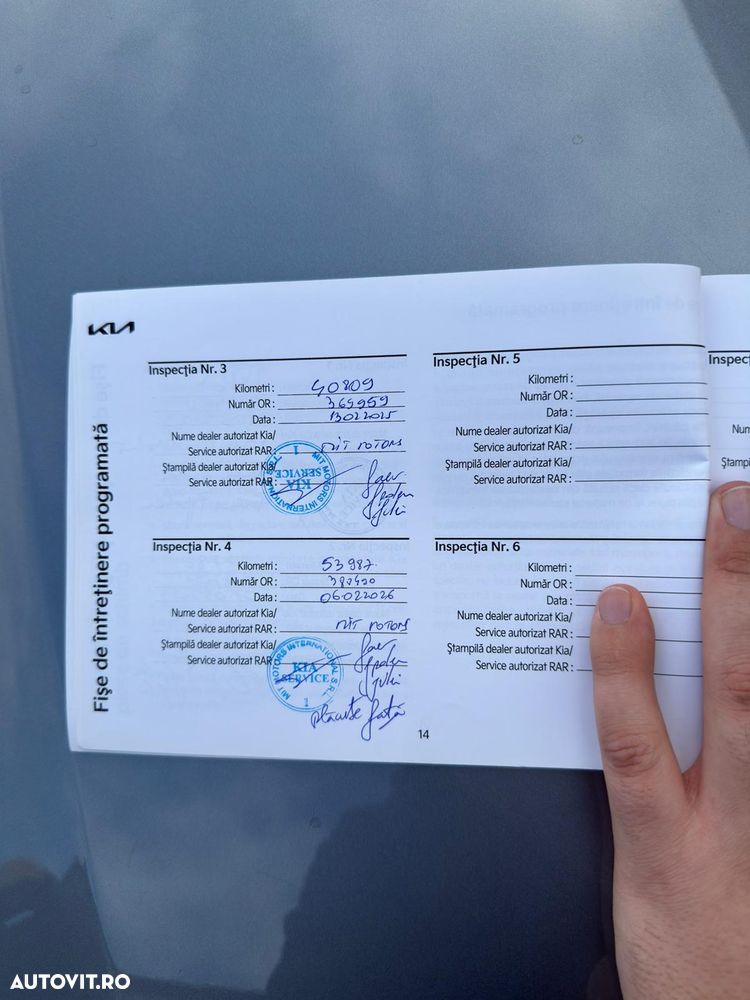 KIA
Fișe de întreținere programată
Inspecția Nr. 3
Kilometri : 40809
Număr OR : 369959
Data : 13022025
Nume dealer autorizat Kia/
Service autorizat RAR : MIT MOTORS
Ștampilă dealer autorizat Kia/
Service autorizat RAR :
MIT MOTORS INTERNATIONAL S.R.L.
KIA
SERVICE
1
Inspecția Nr. 4
Kilometri : 53987
Număr OR :
Data : 06022026
Nume dealer autorizat Kia/
Service autorizat RAR : MIT MOTORS
Ștampilă dealer autorizat Kia/
Service autorizat RAR :
MIT MOTORS INTERNATIONAL S.R.L.
KIA
SERVICE
1
plăcuțe față
Inspecția Nr. 5
Kilometri :
Număr OR :
Data :
Nume dealer autorizat Kia/
Service autorizat RAR :
Ștampilă dealer autorizat Kia/
Service autorizat RAR :
Inspecția Nr. 6
Kilometri :
Număr OR :
Data :
Nume dealer autorizat Kia/
Service autorizat RAR :
Ștampilă dealer autorizat Kia/
Service autorizat RAR :
14
AUTOVIT.RO